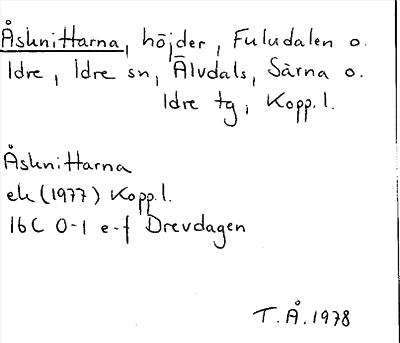 Åsknittarna, höjder, Fuludalen o.
Idre, Idre sn, Älvdals, Särna o.
Idre tg, Kopp.l.
Åsknittarna
ek (1977) Kopp.l.
16C 0-1 e-f Drevdagen
T.Å.1978